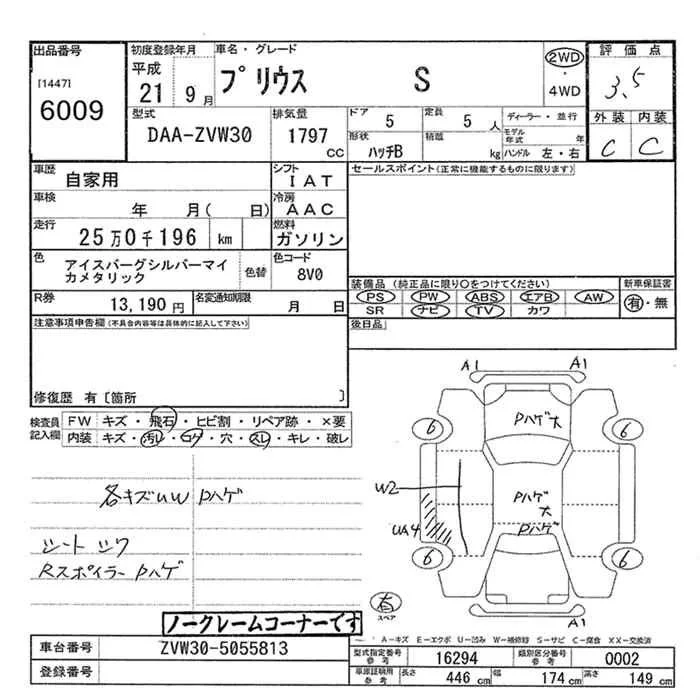 出品番号 初度登録年月 車名・グレード 評価点
[1447] 平成 プリウス S 2WD ・ 4WD 3.5
6009 21 9月
型式 排気量 ドア 5 定員 5 人 ディーラー・並行 外装 内装
DAA-ZVW30 1797 CC 形状 ハッチB 積載 kg モデル年式 年 ハンドル 左・右 C C
車歴 自家用 シフト IAT セールスポイント(正常に機能するものに限ります)
車検 年 月( 日) 冷房 AAC
走行 25万0千196 km 燃料 ガソリン
色 アイスバーグシルバーマイカメタリック 色替 色コード 8V0
装備品 (純正品に限り○をつけてください) 新車保証書
R券 13,190円 名変通知期限 月 日 PS PW ABS エアB AW 有・無
SR ナビ TV カワ
注意事項申告欄(不具合内容等は具体的に記入して下さい) 後日品
修復歴 有 [箇所 ]
検査員記入欄 FW キズ・飛石・ヒビ割・リペア跡・×要
内装 キズ・汚レ・コゲ・穴・スレ・キレ・破レ
A1 A1
Pハゲ大
6 6
各キズUW Pハゲ
W2
Pハゲ大
Pハゲ
UA4
シートシワ
Rスポイラー Pハゲ
6 6
有
スペア
A1
ノークレームコーナーです
A-キズ E-エクボ U-凹み W-補修跡 S-サビ C-腐食 XX-交換済
車台番号 ZVW30-5055813
型式指定番号 参考 16294 類別区分番号 参考 0002
登録番号
車庫証明用 参考 長さ 446 cm 幅 174 cm 高さ 149 cm